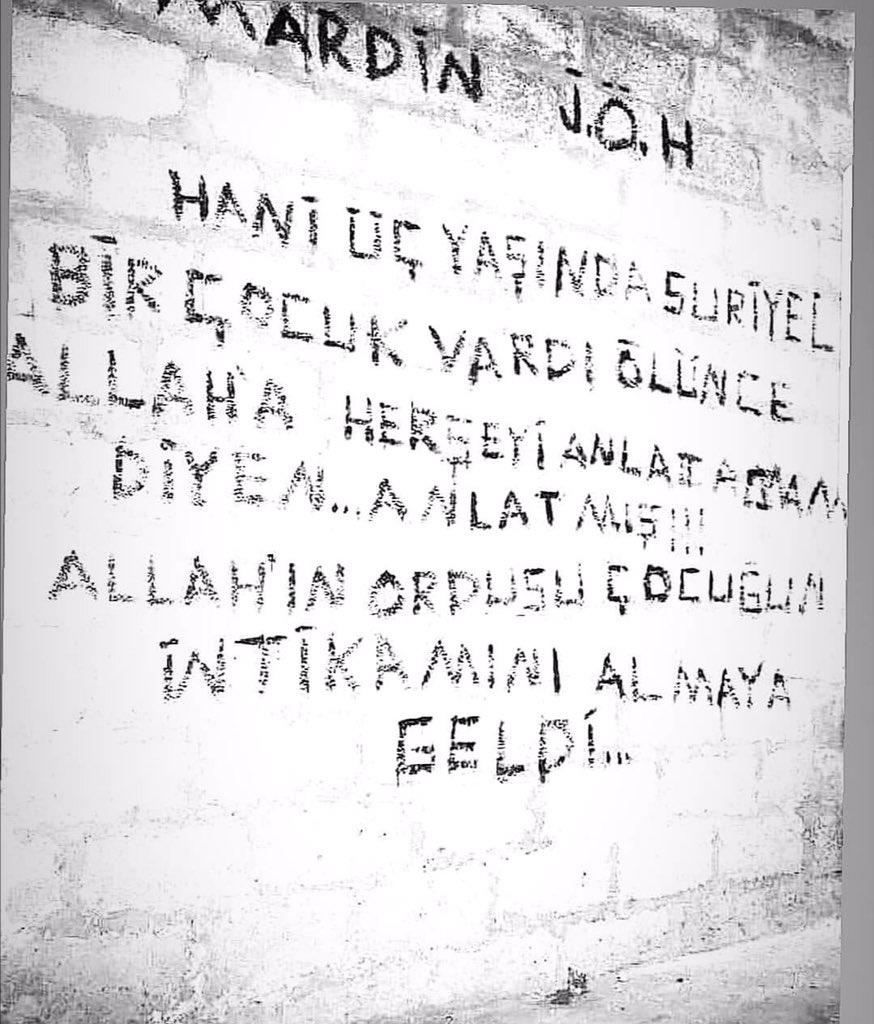 MARDİN J.Ö.H
HANİ ÜÇ YAŞINDA SURİYELİ
BİR ÇOCUK VARDI ÖLÜNCE
ALLAH'A HERŞEYİ ANLATACAM
DİYEN...ANLATMIŞ!!!
ALLAH'IN ORDUSU ÇOCUĞUN
İNTİKAMINI ALMAYA
GELDİ...